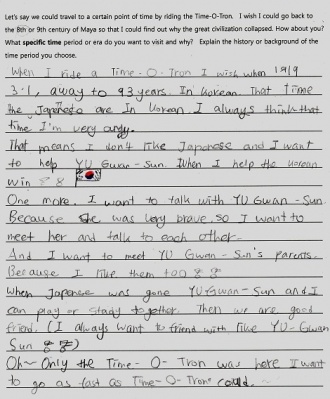 Let's say we could travel to a certain point of time by riding the Time-O-Tron. I wish I could go back to
the 8th or 9th century of Maya so that I could find out why the great civilization collapsed. How about you?
What specific time period or era do you want to visit and why? Explain the history or background of the
time period you choose.
When I ride a Time-O-Tron I wish when 1919
3.1, away to 93 years. In korean. That time
the Japanese are In korean I always think that
time I'm very angy.
That means I don't like Japanese and I want
to help YU Gwan-Sun. When I help the korean
win
One more. I want to talk with YU Gwan-Sun.
Because She was very brave. so I want to
meet her and talk to each other.
And I want to meet YU Gwan-Sun's parents.
Because I like them too
When Japense was gone YU-Gwan-Sun and I
can play or stady together. Then we are good
friend. (I always want to friend with like YU-Gwan
Sun
Oh~ Only the Time-O-Tron was here I want
to go as fast as Time-O-Tron could.